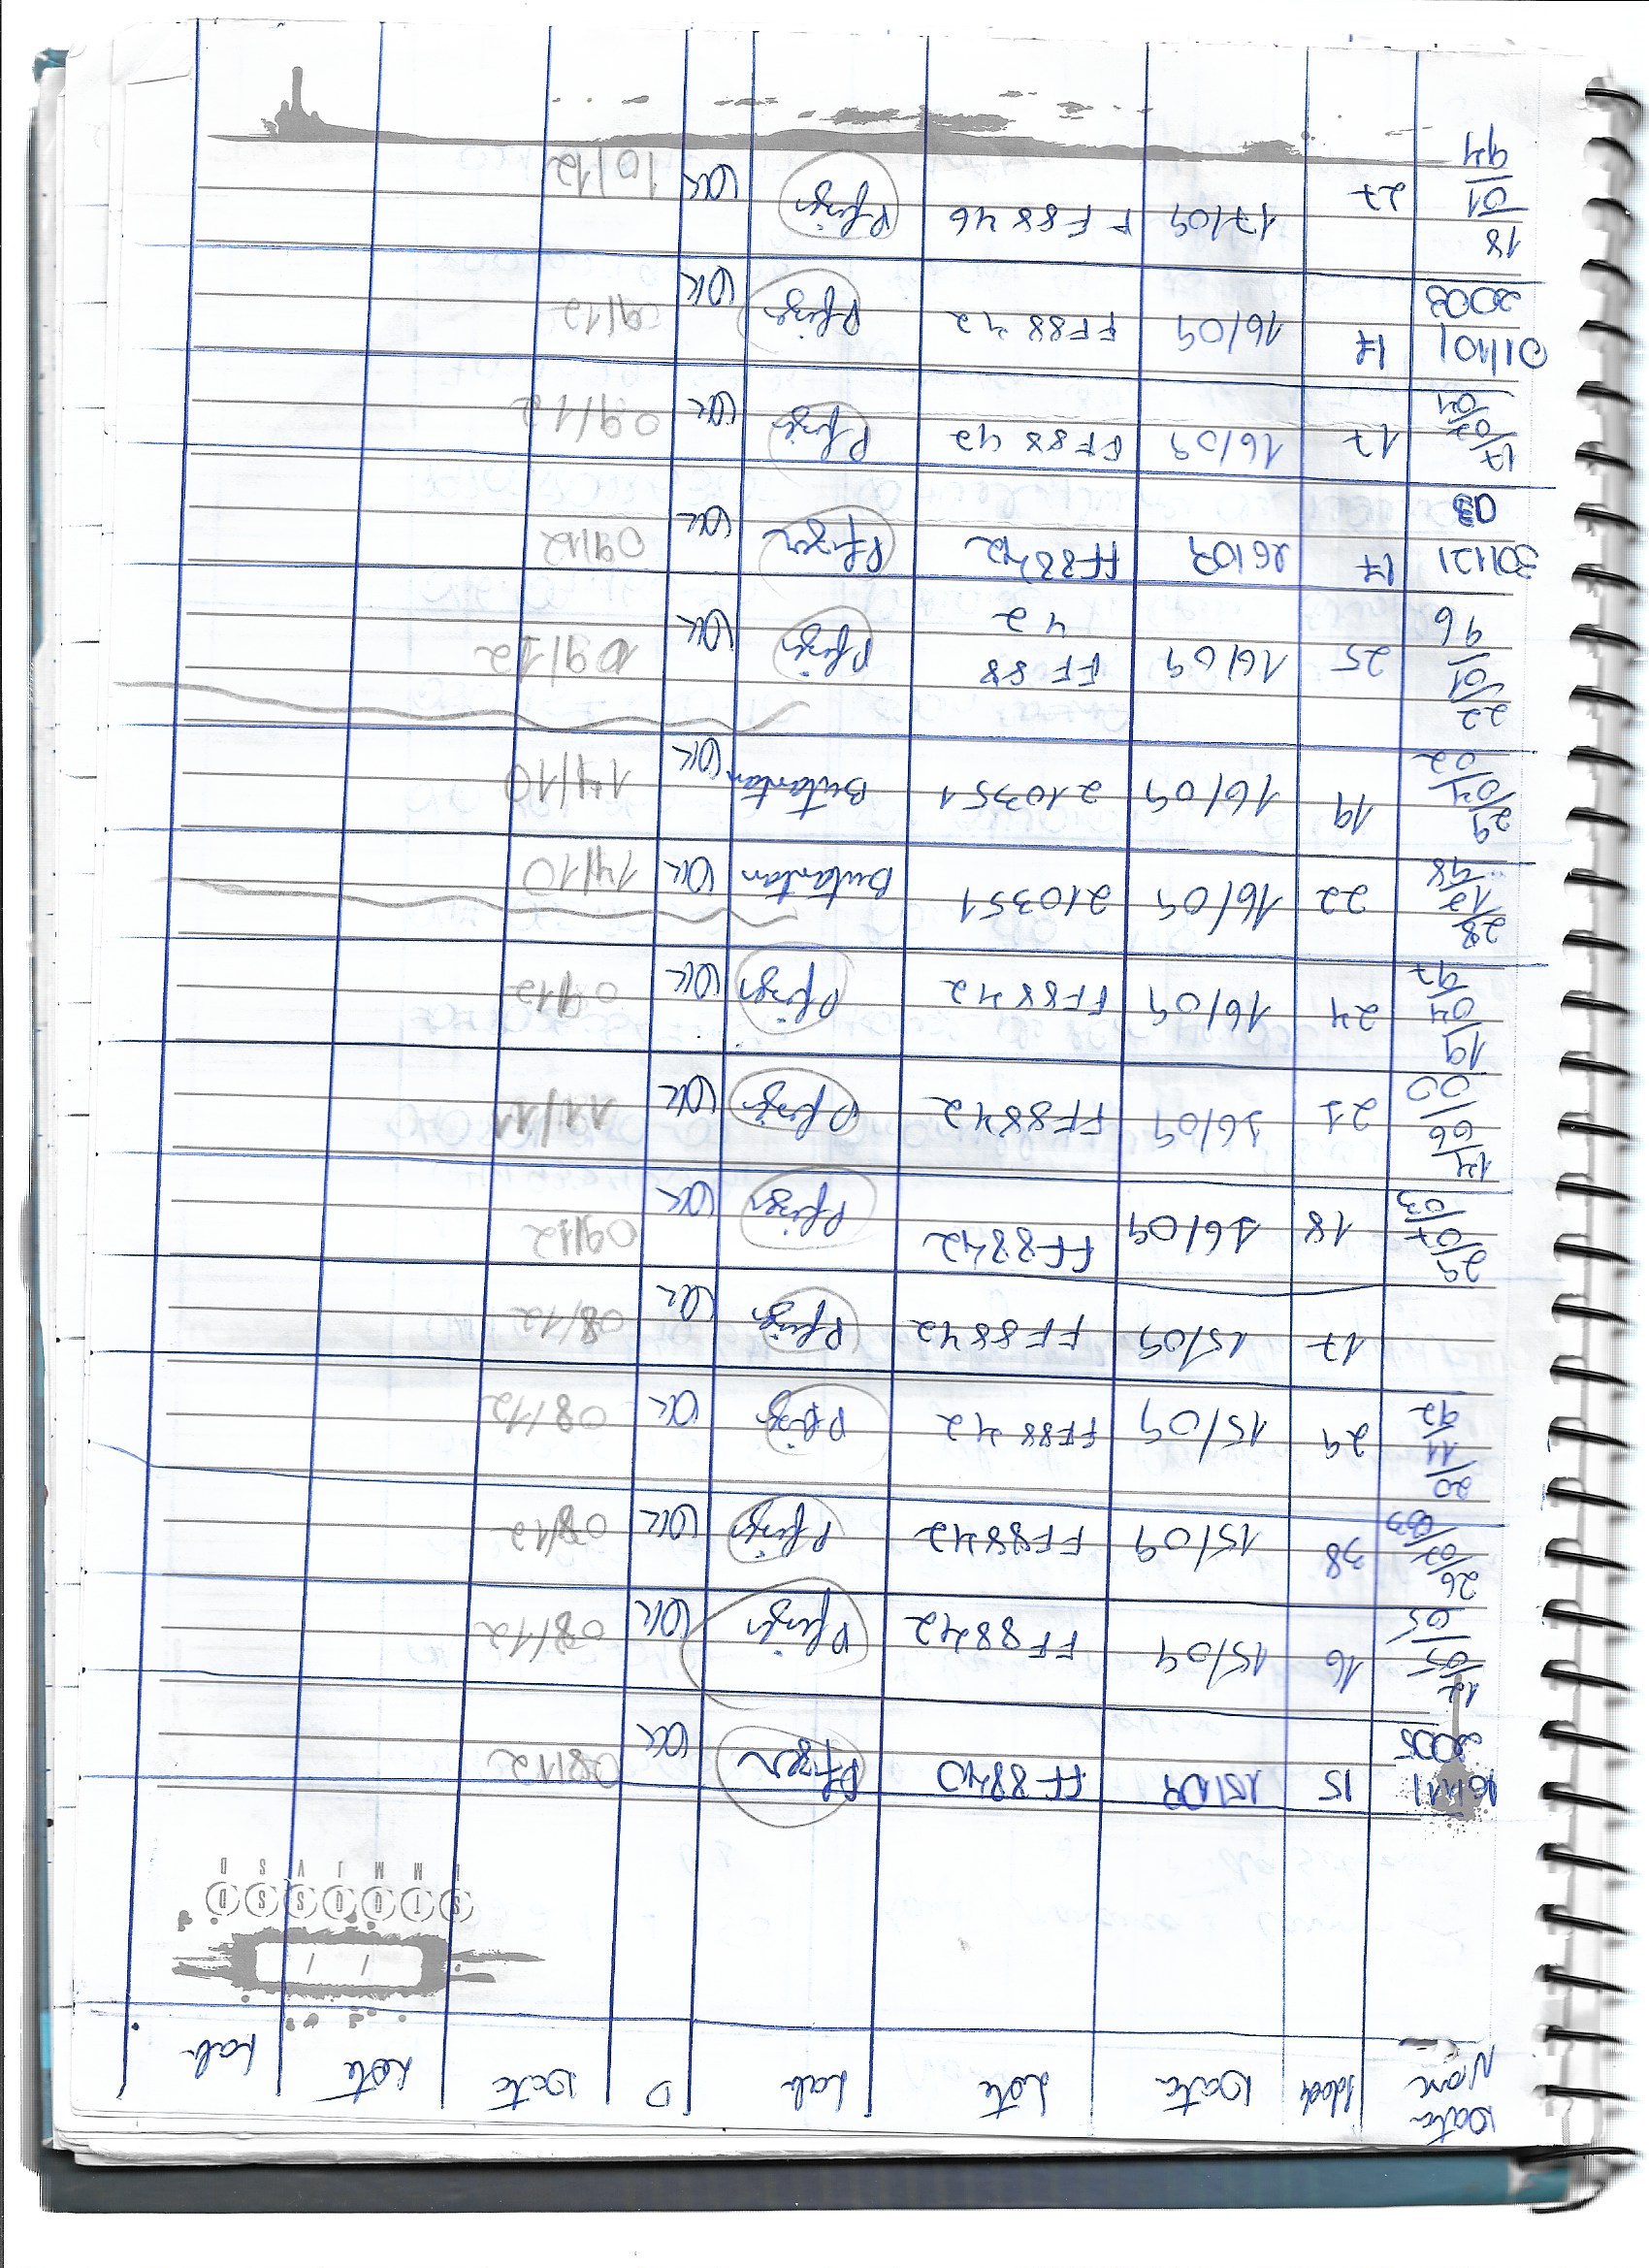 Data Nasc Idade Data Lote Lab D Data Lote Lab
S T Q Q S S D
L M M J V S D
16/11/2005 15 15/09 FF8840 Pfizer OK 08/12
12/05/05 16 15/09 FF8842 Pfizer OK 08/12
26/02/83 38 15/09 FF8842 Pfizer OK 08/12
20/11/92 29 15/09 FF8842 Pfizer OK 08/12
17 15/09 FF8842 Pfizer OK 08/12
29/07/03 18 16/09 FF8842 Pfizer OK 09/12
14/06/00 21 16/09 FF8842 Pfizer OK 11/11
19/04/97 24 16/09 FF8842 Pfizer OK 09/12
28/12/98 22 16/09 210351 Butantan OK 14/10
29/04/02 19 16/09 210351 Butantan OK 14/10
22/01/96 25 16/09 FF8842 Pfizer OK 09/12
30/12/03 17 16/09 FF8842 Pfizer OK 09/12
17/02/04 17 16/09 FF8842 Pfizer OK 09/12
01/10/2003 17 16/09 FF8842 Pfizer OK 09/12
18/01/94 27 17/09 FF8846 Pfizer OK 10/12